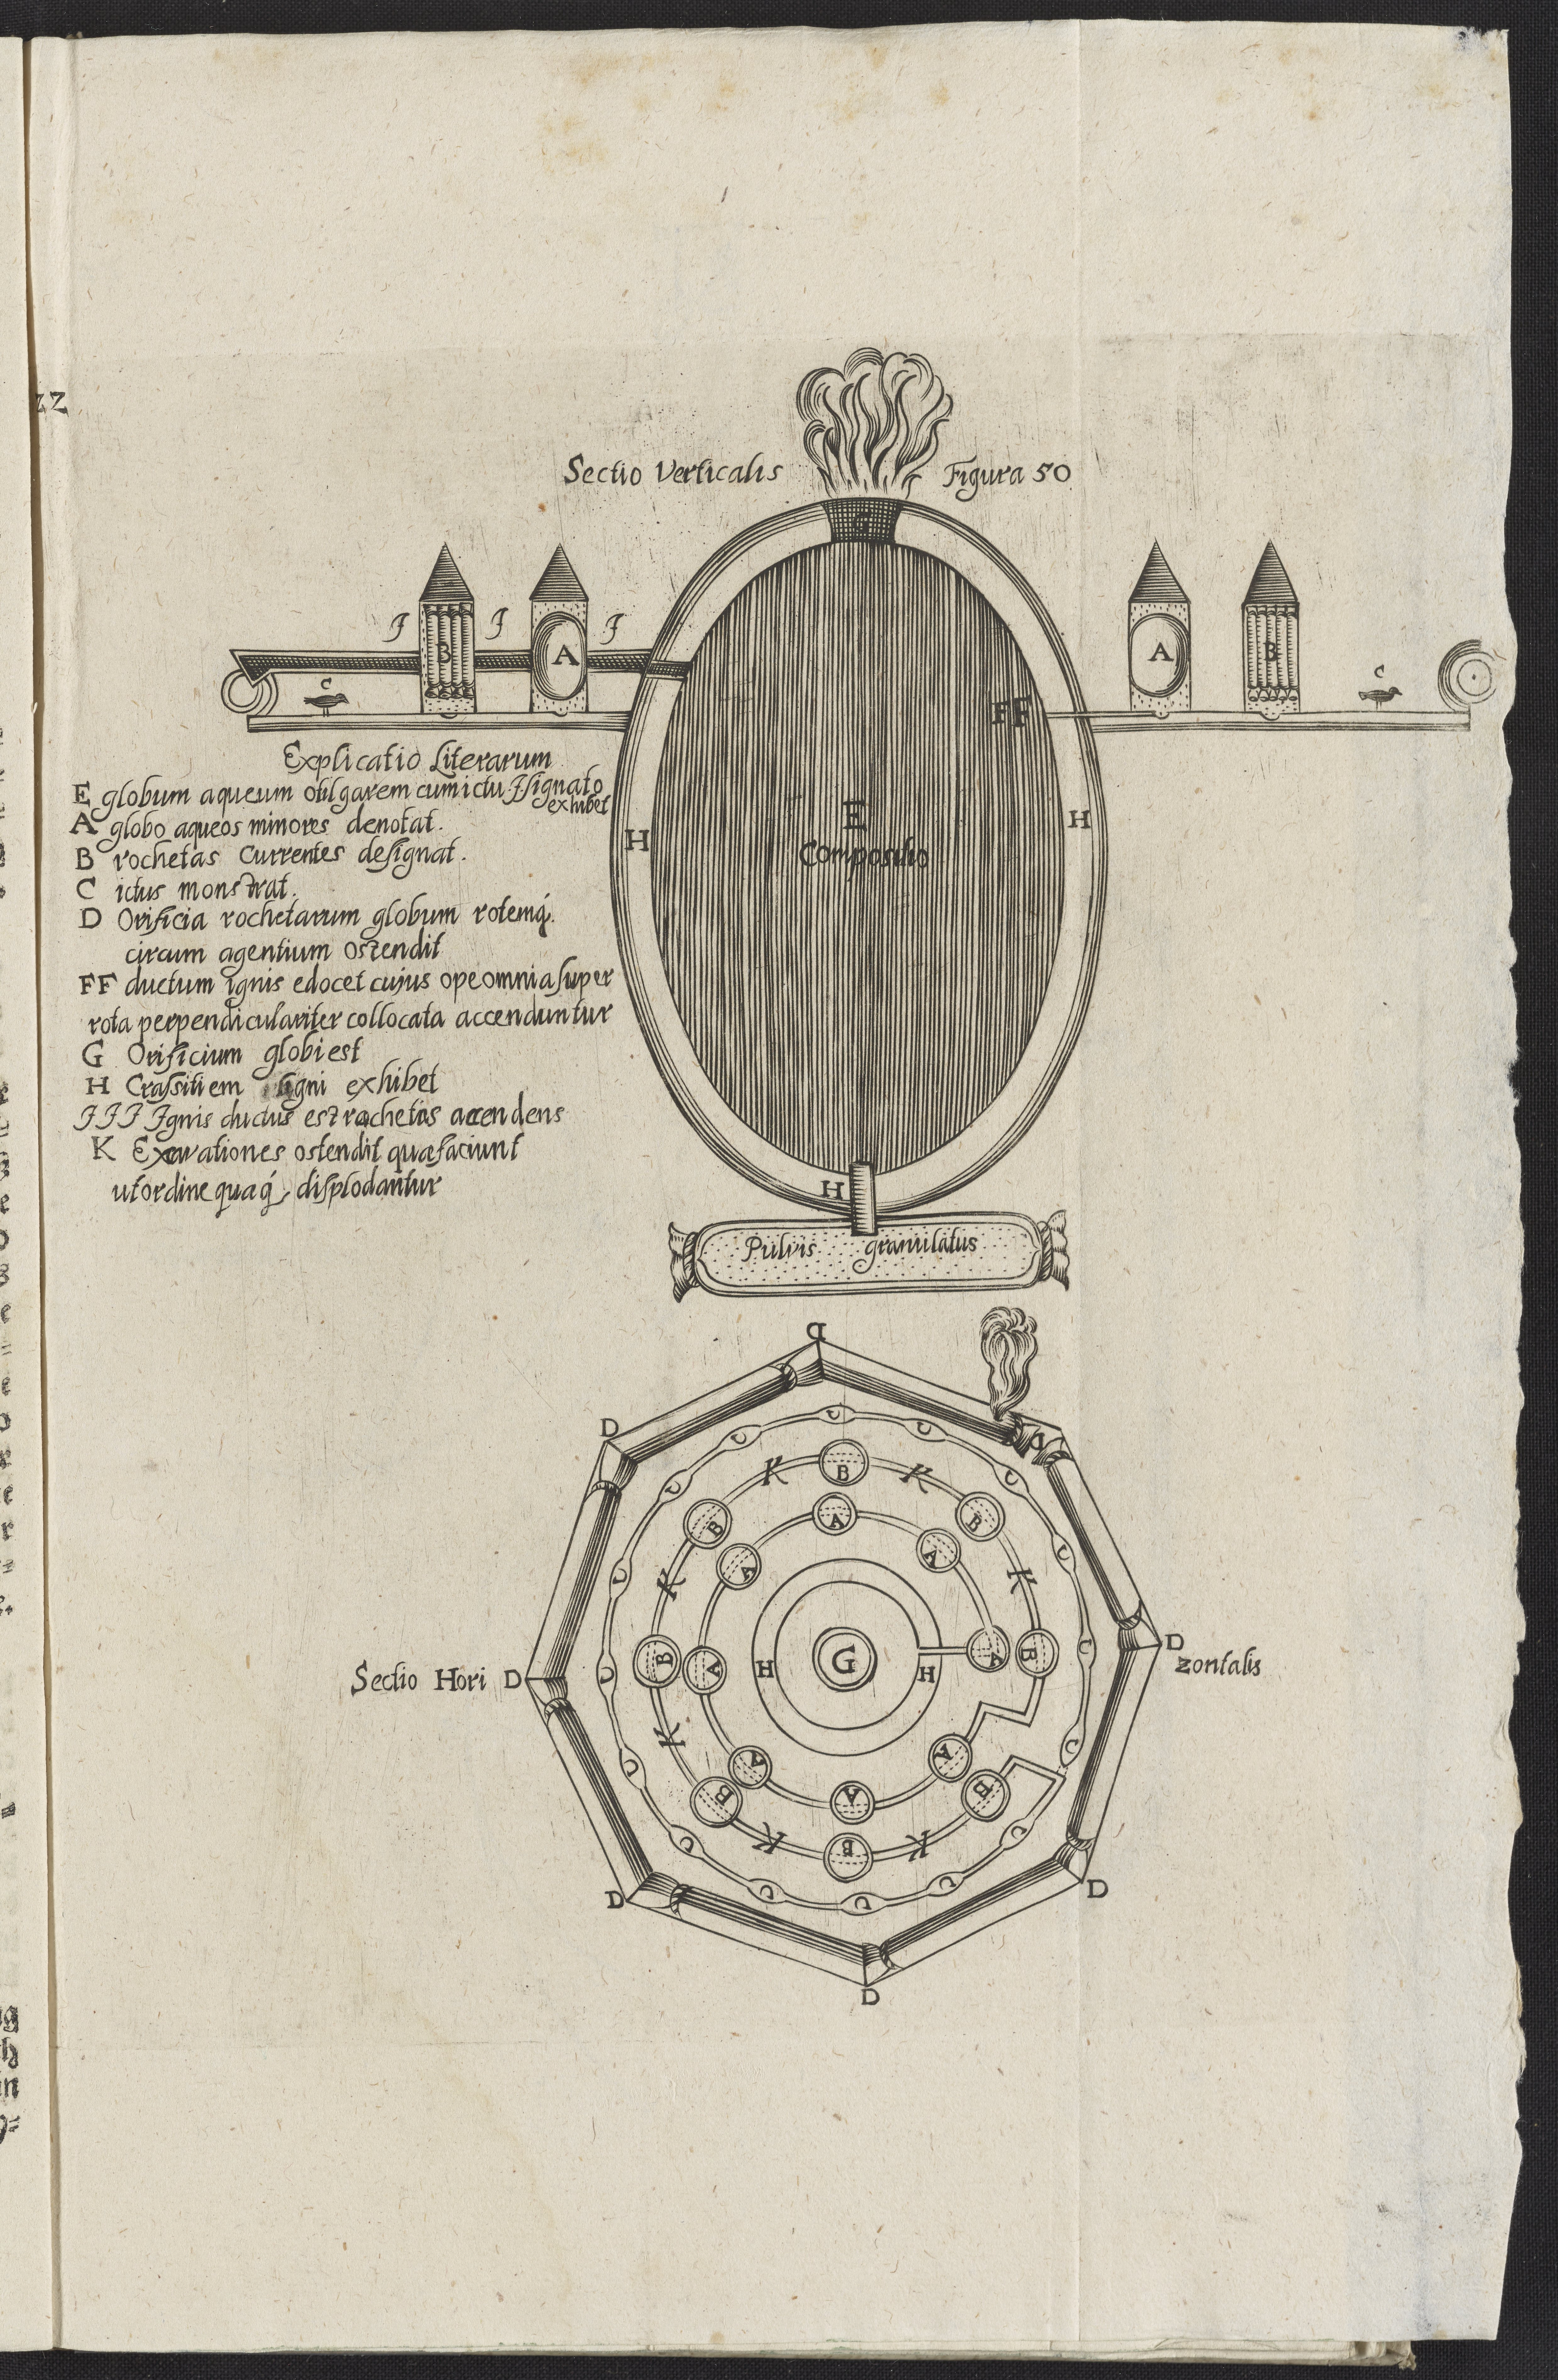 Sectio Verticalis
Figura 50
G
J J J
B A
A B
C
C
FF
E
Compositio
H
H
H
Explicatio Literarum
E globum aqueum vulgarem cum ictu J signato
exhibet
A globo aqueos minores denotat.
B rochetas currentes designat.
C ictus monstrat.
D Orificia rochetarum globum rotemq́.
circum agentium ostendit
FF ductum ignis edocet cujus ope omnia super
rota perpendiculariter collocata accenduntur
G Orificium globi est
H Crassitiem ligni exhibet
JJJ Ignis ductus est rochetas accendens
K Excavationes ostendit quæ faciunt
ut ordine quaq́, displodantur
Pulvis granulatus
D
D
D
C C C C C C C C C C C C C C C C C
K K K K K K K
B B B B B B B B
A A A A A A A A
H G H
Sectio Hori D
D zontalis
D
D
D